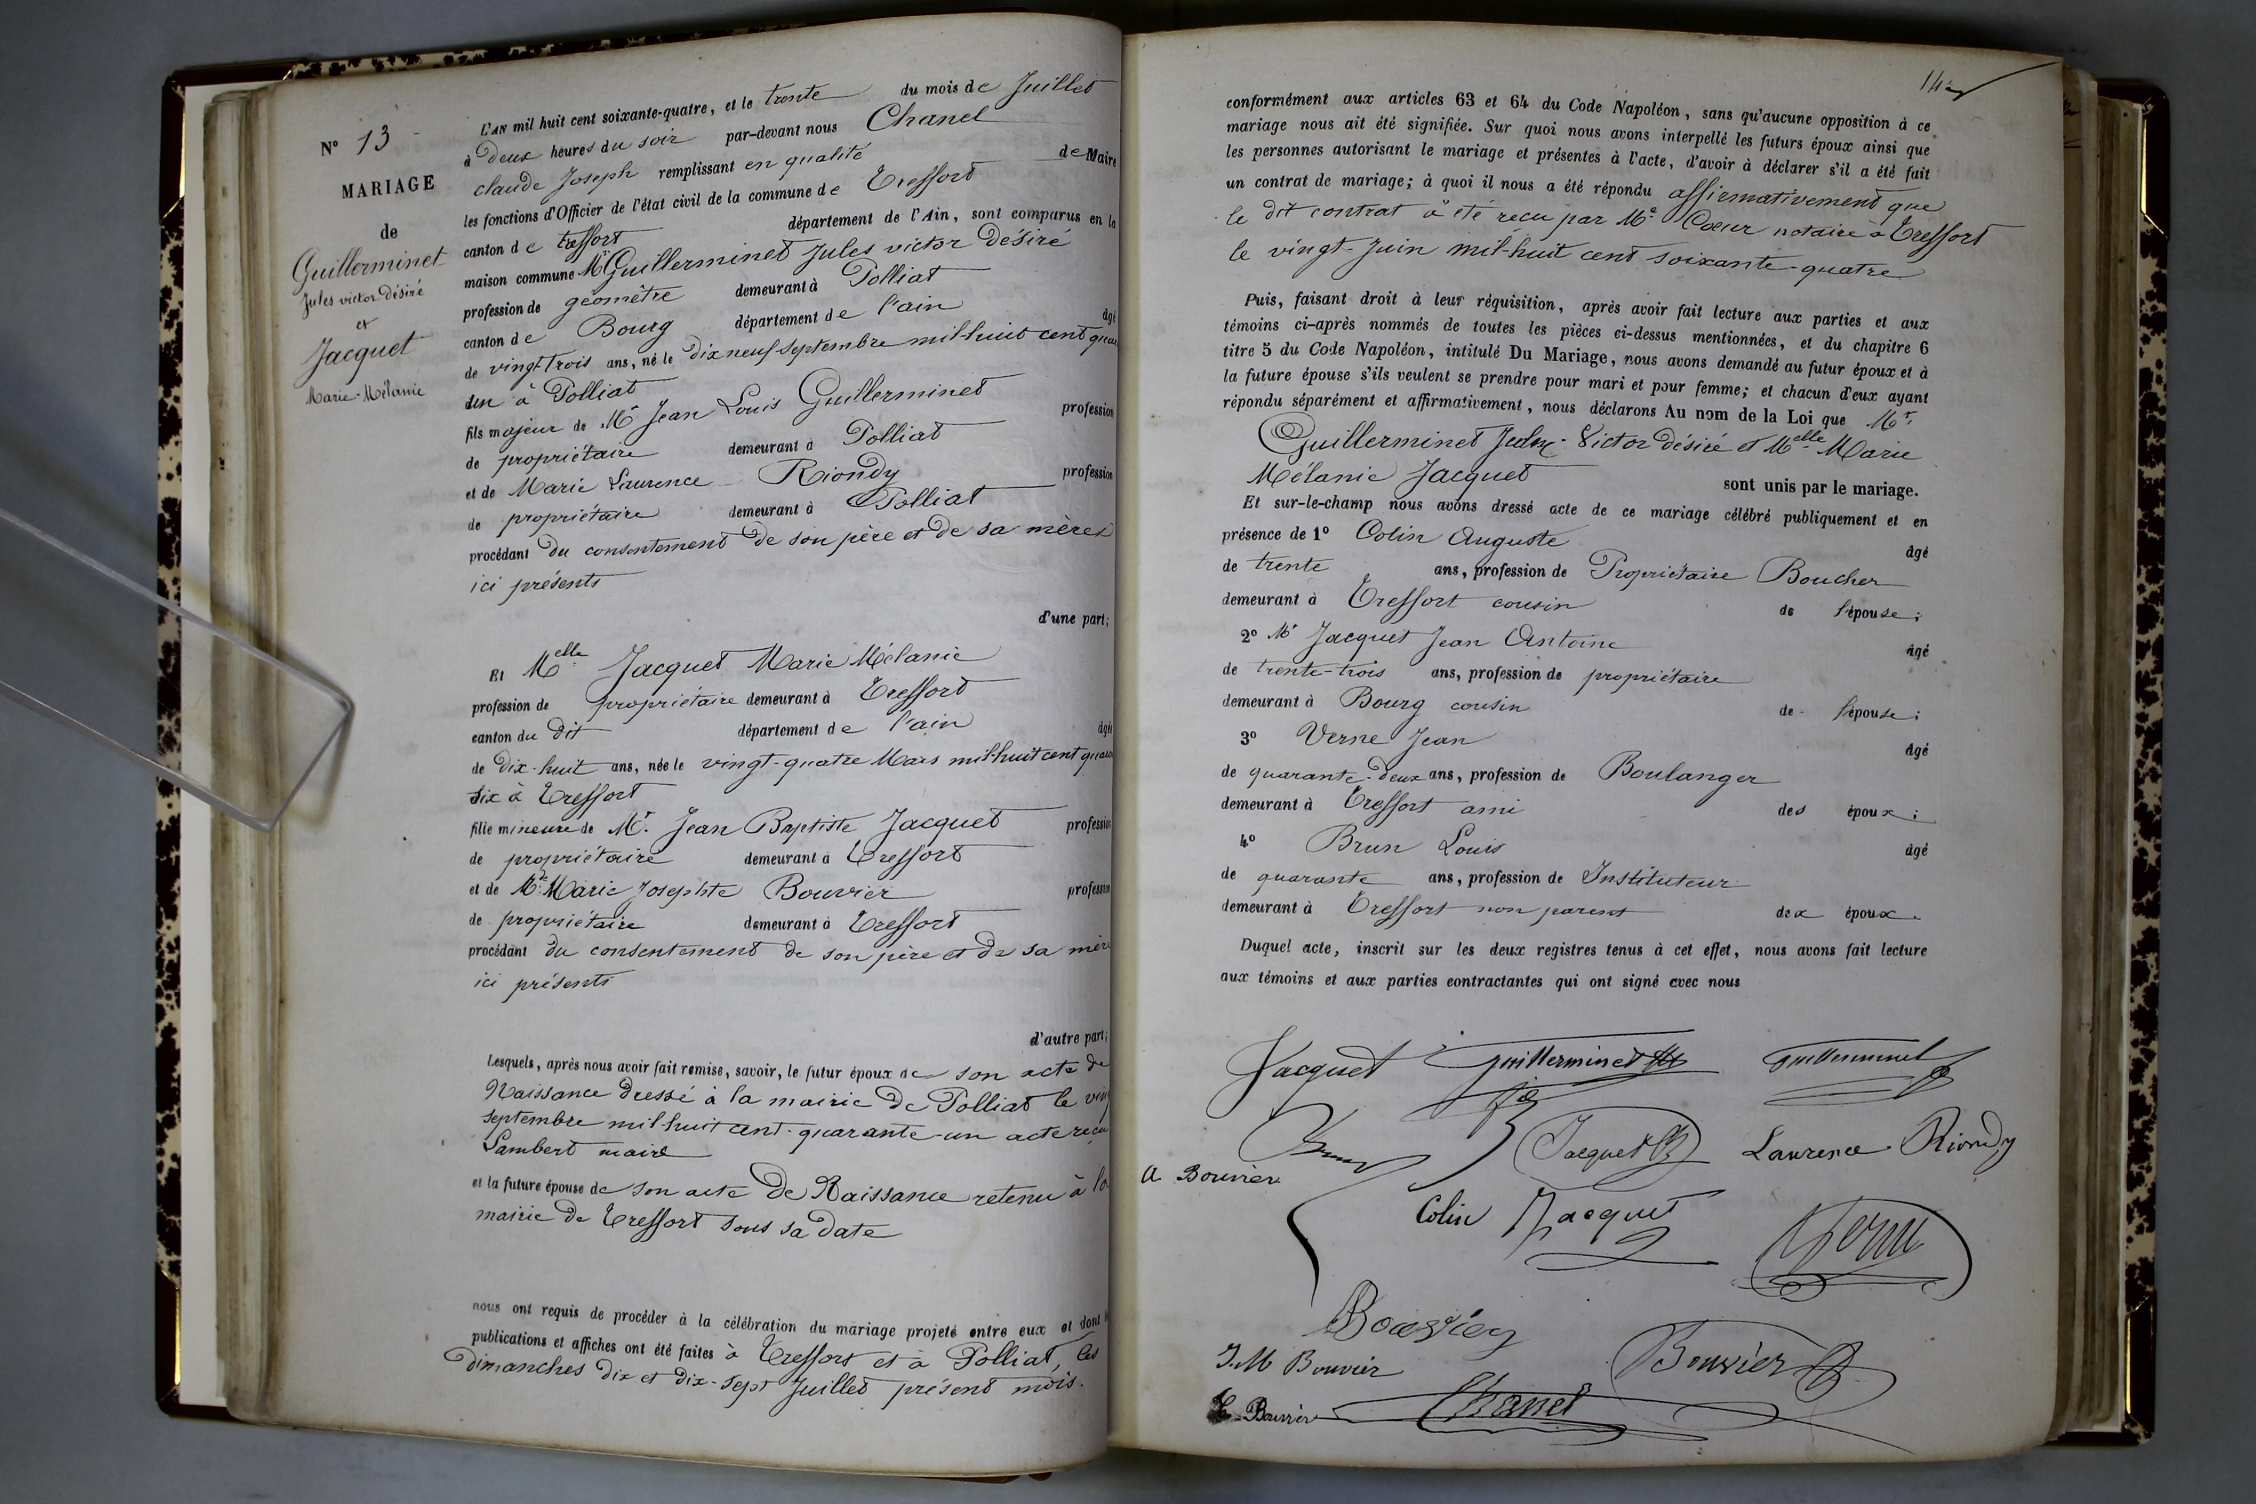 N° 13
MARIAGE
de
Guillerminet
Jules victor Désiré
et
Jacquet
Marie-Mélanie
L'AN mil huit cent soixante-quatre, et le trente du mois de Juillet
à Deux heures du soir par-devant nous Chanel
claude Joseph remplissant en qualité de Maire
les fonctions d'Officier de l'état civil de la commune de Treffort
canton de treffort département de l'Ain, sont comparus en la
maison commune Mr Guillerminet Jules victor Désiré
profession de géomètre demeurant à Polliat
canton de Bourg département de l'ain âgé
de vingt-trois ans, né le dix neuf septembre mil-huit cent quar
un à Polliat
fils majeur de Mr Jean Louis Guillerminet profession
de propriétaire demeurant à Polliat
et de Marie Laurence Riondy profession
de propriétaire demeurant à Polliat
procédant du consentement de son père et de sa mère
ici présents
d'une part;
Et Melle Jacquet Marie Mélanie
profession de propriétaire demeurant à Treffort
canton du dit département de l'ain âgée
de dix-huit ans, née le vingt-quatre Mars mil-huit cent quara
six à Treffort
fille mineure de Mr. Jean Baptiste Jacquet profession
de propriétaire demeurant à Treffort
et de Mde Marie Josephte Bouvier profession
de propriétaire demeurant à Treffort
procédant du consentement de son père et de sa mère
ici présents
d'autre part;
Lesquels, après nous avoir fait remise, savoir, le futur époux de son acte de
Naissance dressé à la mairie de Polliat le ving
septembre mil-huit cent-quarante-un acte reçu
Lambert maire
et la future épouse de son acte de Naissance retenu à la
mairie de Treffort sous sa date
nous ont requis de procéder à la célébration du mariage projeté entre eux et dont
publications et affiches ont été faites à Treffort et à Polliat, les
dimanches dix et dix-sept Juillet présent mois.
conformément aux articles 63 et 64 du Code Napoléon, sans qu'aucune opposition à ce
mariage nous ait été signifiée. Sur quoi nous avons interpellé les futurs époux ainsi que
les personnes autorisant le mariage et présentes à l'acte, d'avoir à déclarer s'il a été fait
un contrat de mariage; à quoi il nous a été répondu affirmativement que
le dit contrat a été reçu par Me Coeur notaire à Treffort
le vingt-Juin mil-huit cent soixante-quatre
Puis, faisant droit à leur réquisition, après avoir fait lecture aux parties et aux
témoins ci-après nommés de toutes les pièces ci-dessus mentionnées, et du chapitre 6
titre 5 du Code Napoléon, intitulé Du Mariage, nous avons demandé au futur époux et à
la future épouse s'ils veulent se prendre pour mari et pour femme; et chacun d'eux ayant
répondu séparément et affirmativement, nous déclarons Au nom de la Loi que Mr.
Guillerminet Jules-Victor Désiré et Melle Marie
Mélanie Jacquet sont unis par le mariage.
Et sur-le-champ nous avons dressé acte de ce mariage célébré publiquement et en
présence de 1° Colin Auguste âgé
de trente ans, profession de Propriétaire Boucher
demeurant à Treffort cousin de l'épouse;
2° Mr Jacquet Jean Antoine âgé
de trente-trois ans, profession de propriétaire
demeurant à Bourg cousin de l'épouse;
3° Verne Jean âgé
de quarante-deux ans, profession de Boulanger
demeurant à Treffort ami des époux;
4° Brun Louis âgé
de quarante ans, profession de Instituteur
demeurant à Treffort non parent des époux.
Duquel acte, inscrit sur les deux registres tenus à cet effet, nous avons fait lecture
aux témoins et aux parties contractantes qui ont signé avec nous
Jacquet Guillerminet Guillerminet
Brun Jacquet Laurence Riondy
A Bouvier
Colin Jacquet Verne
Bouvier
J.M Bouvier Bouvier
Bouvier Chanel